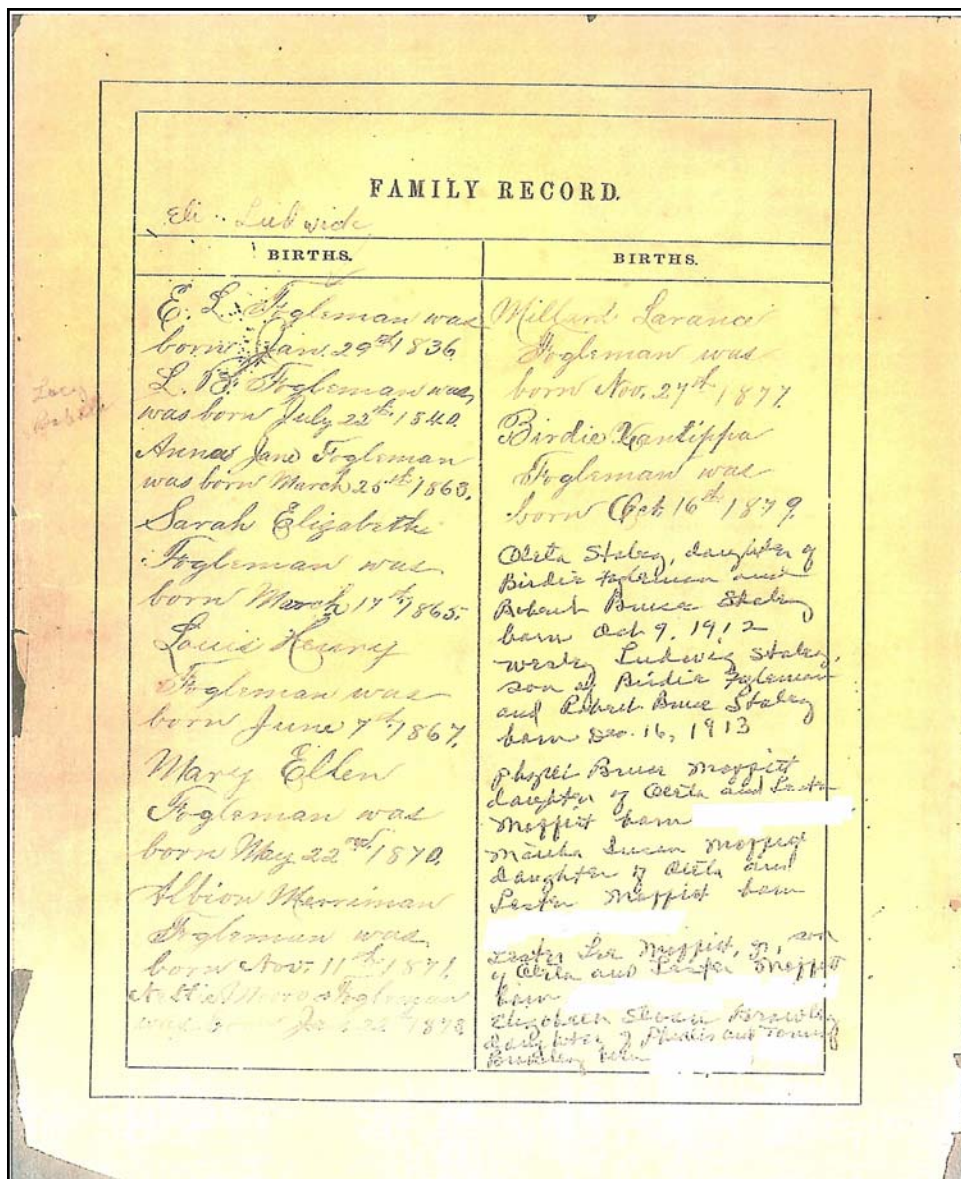 FAMILY RECORD.
Eli Ludwick
BIRTHS.
E. L. Fogleman was
born Jan. 29th 1836
L. B. Fogleman was,
was born July 22th 1840.
Anna Jane Fogleman
was born March 25th 1863.
Sarah Elizabeth
Fogleman was
born March 17th 1865.
Louis Henry
Fogleman was
born June 7th 1867.
Mary Ellen
Fogleman was
born May 22nd 1870.
Albion Merriman
Fogleman was
born Nov. 11th 1871.
Fogleman
was born
BIRTHS.
Millard Larance
Fogleman was
born Nov. 27th 1877.
Birdie Xantippa
Fogleman was
born Oct. 16th 1879.
Oleta Staley, daughter of
Birdie Fogleman and
Robert Bruce Staley
born Oct 9, 1912
Wesley Ludwig Staley,
son of Birdie Fogleman
and Robert Bruce Staley
born Dec. 16, 1913
Bruce Moffitt
daughter of Oleta and Lester
Moffitt born
Moffitt
daughter of Oleta and
Lester Moffitt born
Lester Lee Moffitt, Jr., son
of Oleta and Lester Moffitt
born
Elizabeth
daughter of and
born